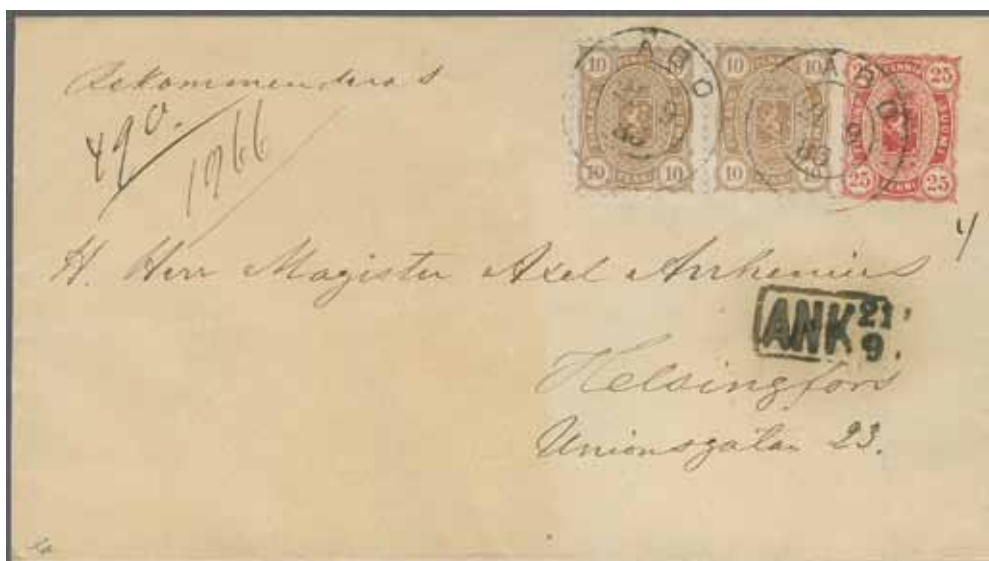 Rekommenderas
490.
1966
ÅBO
ÅBO
10 10 10 10
10 10 10 10
25 25 25
SUOMI
4
H. Herr Magister Axel Arrhenius
ANK 21/9.
Helsingfors
Unionsgatan 23.